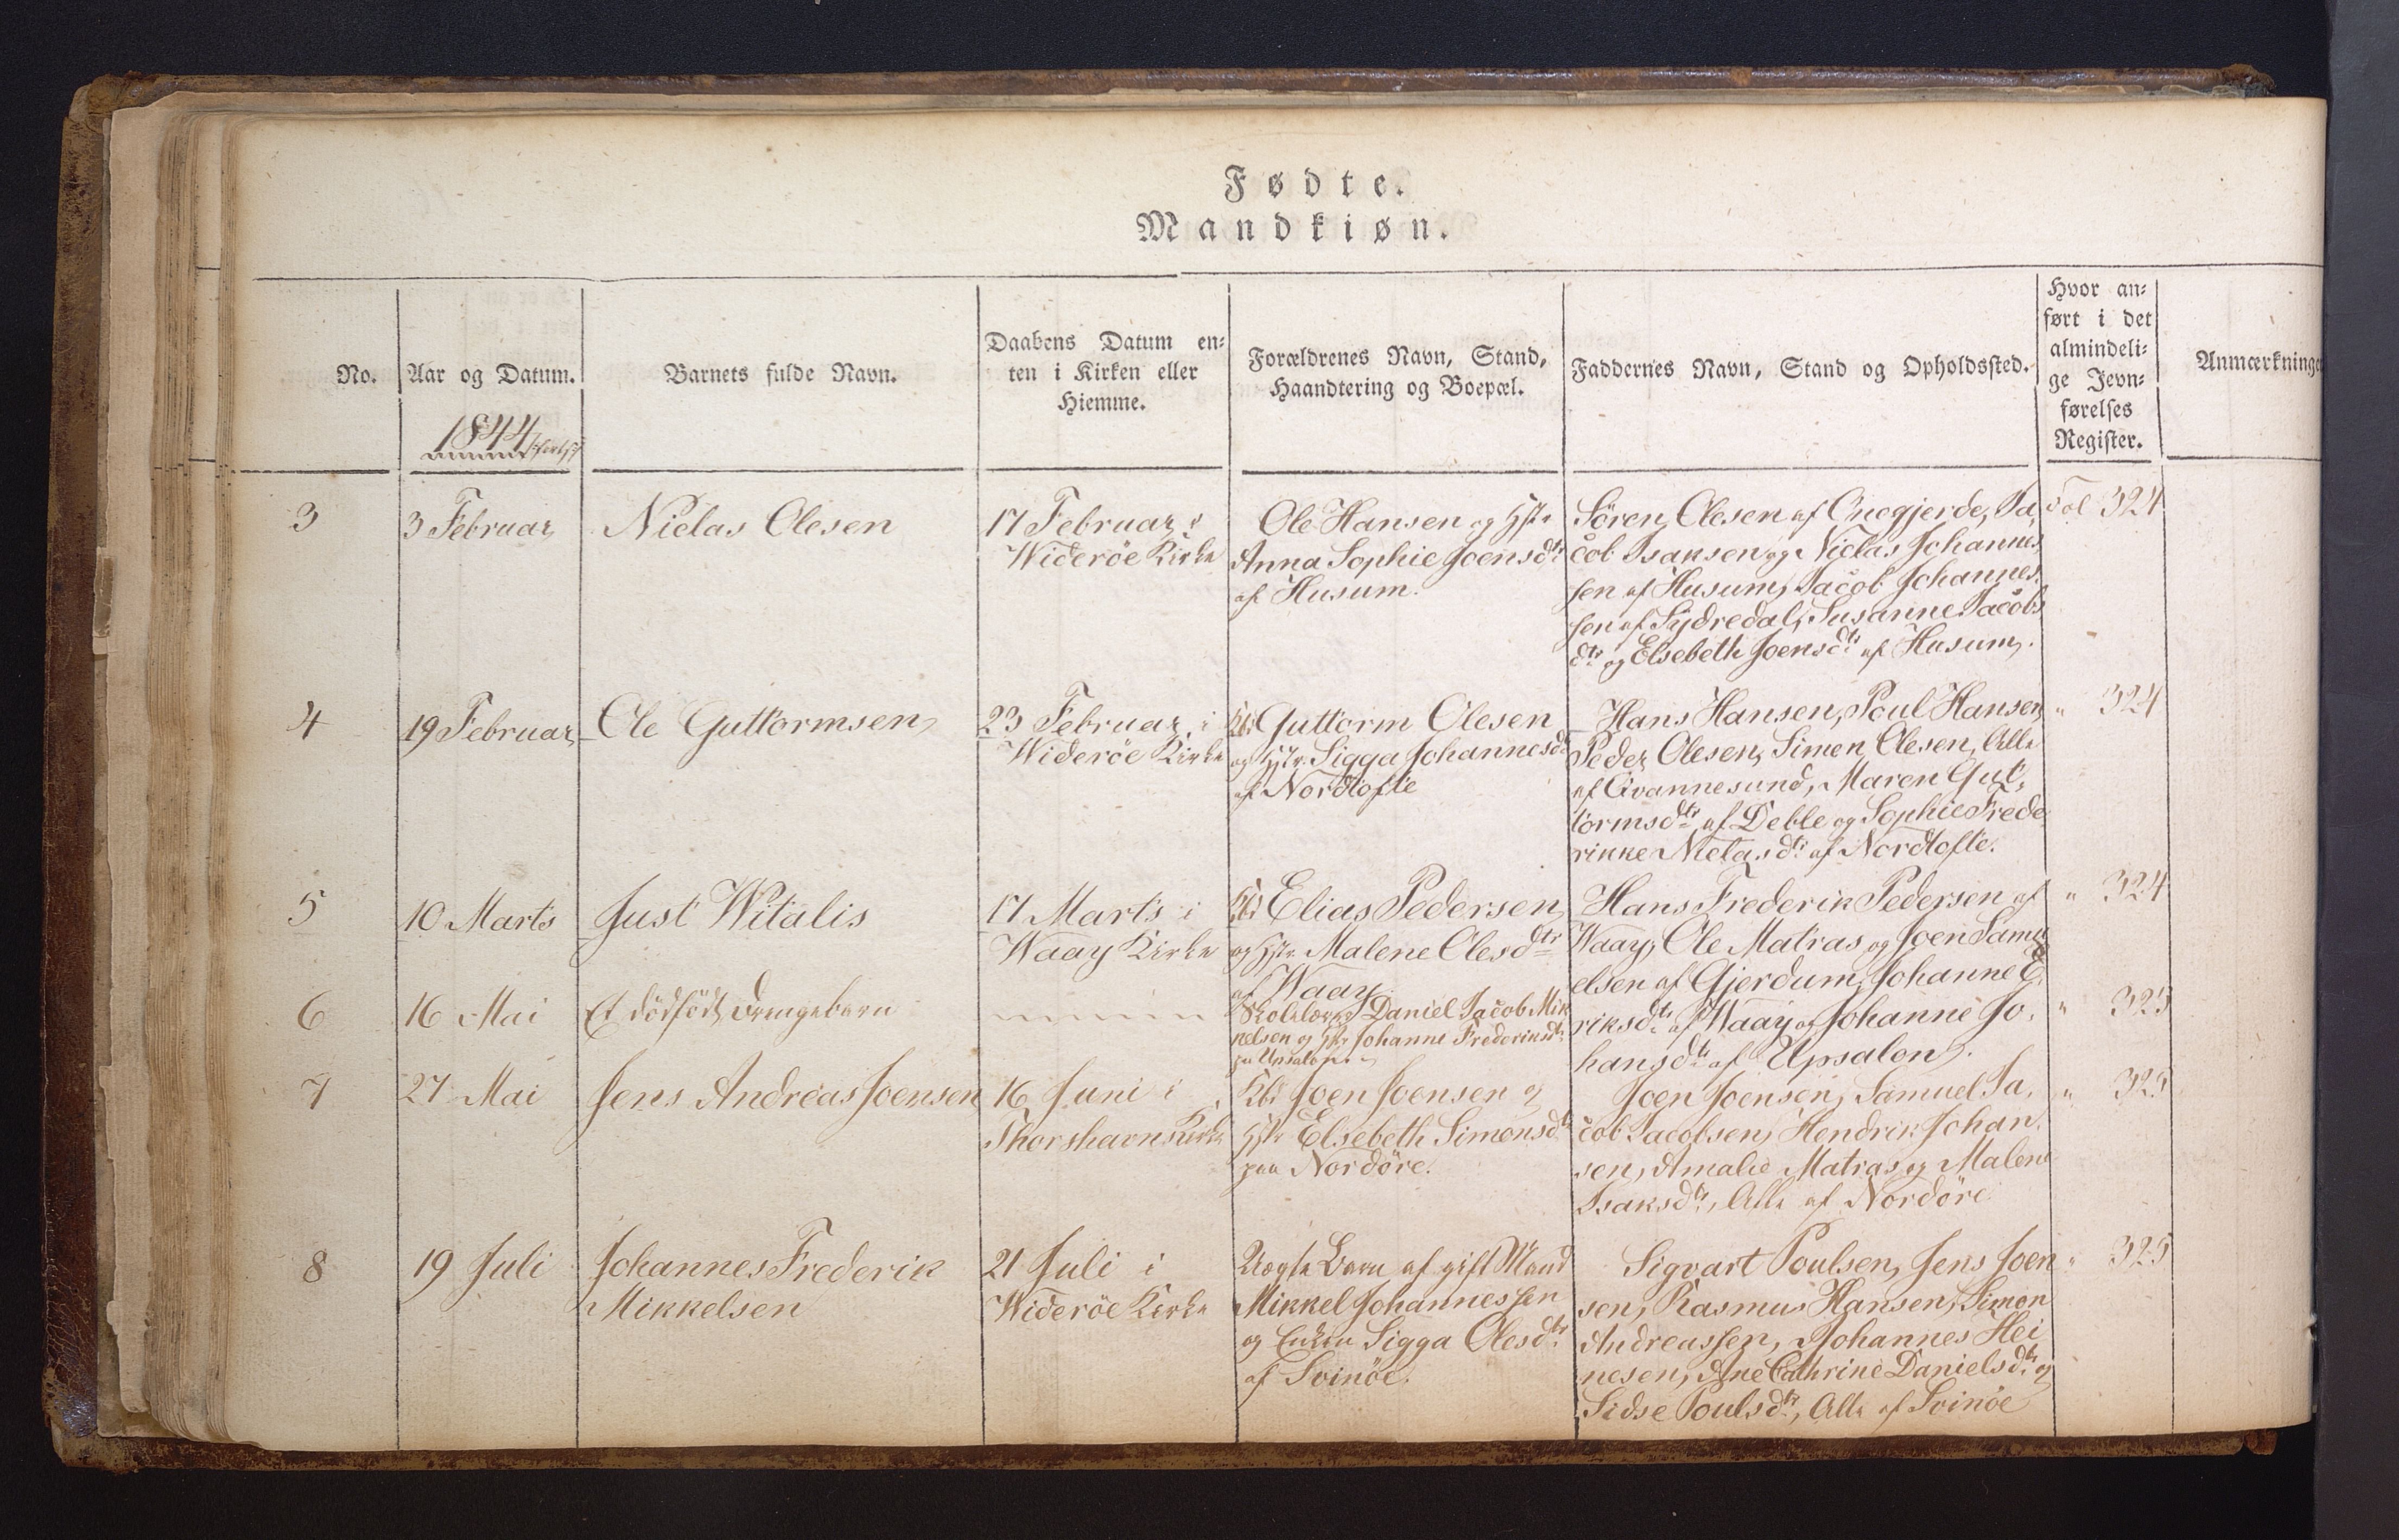 Fødte.
Mandkiøn.
No.
Aar og Datum.
Barnets fulde Navn.
Daabens Datum en-
ten i Kirken eller
Hiemme.
Forældrenes Navn, Stand,
Haandtering og Boepæl.
Faddernes Navn, Stand og Opholdssted.
Hvor an-
ført i det
almindeli-
ge Jevn-
førelses
Register.
Anmærkninge
1844
3
3 Februar
Nielas Olesen
17 Februar i
Widerøe Kirke
Ole Hansen og Hstr
Anna Sophie Joensdtr
af Husum.
Søren Olesen af Qnegjerde, Ja,
cob Isaksen og Niclas Johannes,
sen af Husum, Jacob Johannes,
sen af Sydredal, Susanne Jacobs
dtr og Elsebeth Joensdtr af Husum.
Fol 324
4
19 Februar
Ole Guttormsen
23 Februar i
Widerøe Kirke
Kbd Guttorm Olesen
og Hstr. Sigga Johannesdtr
af Nordtofte
Hans Hansen, Poul Hansen,
Peder Olesen, Simen Olesen, Alle
af Qvannesund, Maren Gut,
tormsdtr af Deble og Sophie Frede
rikke Nielasdtr af Nordtofte.
" 324
5
10 Marts
Just Witalis
17 Marts i
Waay Kirke
Kbd Elias Pedersen
og Hstr Malene Olesdtr
af Waay.
Hans Frederik Pedersen af
Waay, Ole Matras og Joen Samu
elsen af Gjerdum, Johanne E,
riksdtr af Waay og Johanne Jo,
hansdtr af Upsalon.
" 324
6
16 Mai
Et dödfödt Drengebarn
Skolelærer Daniel Jacob Mik
kelsen og Hstr Johanne Frederiksdtr
paa Upsalon
" 325
7
27 Mai
Jens Andreas Joensen
16 Juni i
Thorshavns Kirke
Kbd Joen Joensen og
Hstr Elsebeth Simonsdtr
paa Nordöre.
Joen Joensen, Samuel Ja,
cob Jacobsen, Hendrik Johan,
sen, Amalie Matras og Malene
Isaksdtr, Alle af Nordöre
" 325
8
19 Juli
Johannes Frederik
Mikkelsen
21 Juli i
Widerøe Kirke
Uægte Barn af gift Mand
Mikkel Johannessen
og Enken Sigga Olesdtr
af Svinöe.
Sigvart Poulsen, Jens Joen
sen, Rasmus Hansen, Simon
Andreassen, Johannes Hei
nesen, Ane Cathrine Danielsdtr og
Sidse Poulsdtr, Alle af Svinöe
" 325